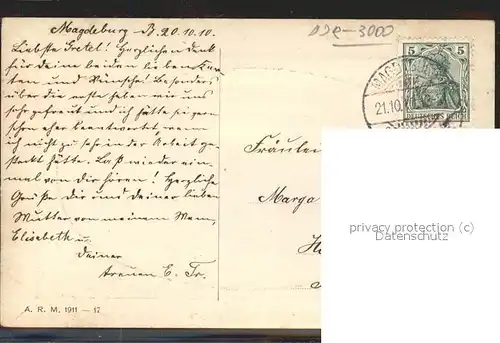 Magdeburg B. 20.10.10.
Liebste Gretel! Herzlichen Dank
für deine beiden lieben Karten
und Wünsche! Besonders
über die erste haben wir uns
sehr gefreut und ich hätte sie gern
schon eher beantwortet, wenn
ich nicht zu sehr in der Arbeit
gesteckt hätte. Laß wieder einmal
von dir hören! Herzliche
Grüße dir und deiner lieben
Mutter von meinem Mann,
Elisabeth u.
deiner
treuen E. Fr.
A. R. M. 1911 — 17
D39e-3000
5 5
MAGDEBURG
21.10.
DEUTSCHES REICH
Fräulein
Marga
privacy protection (c)
Datenschutz